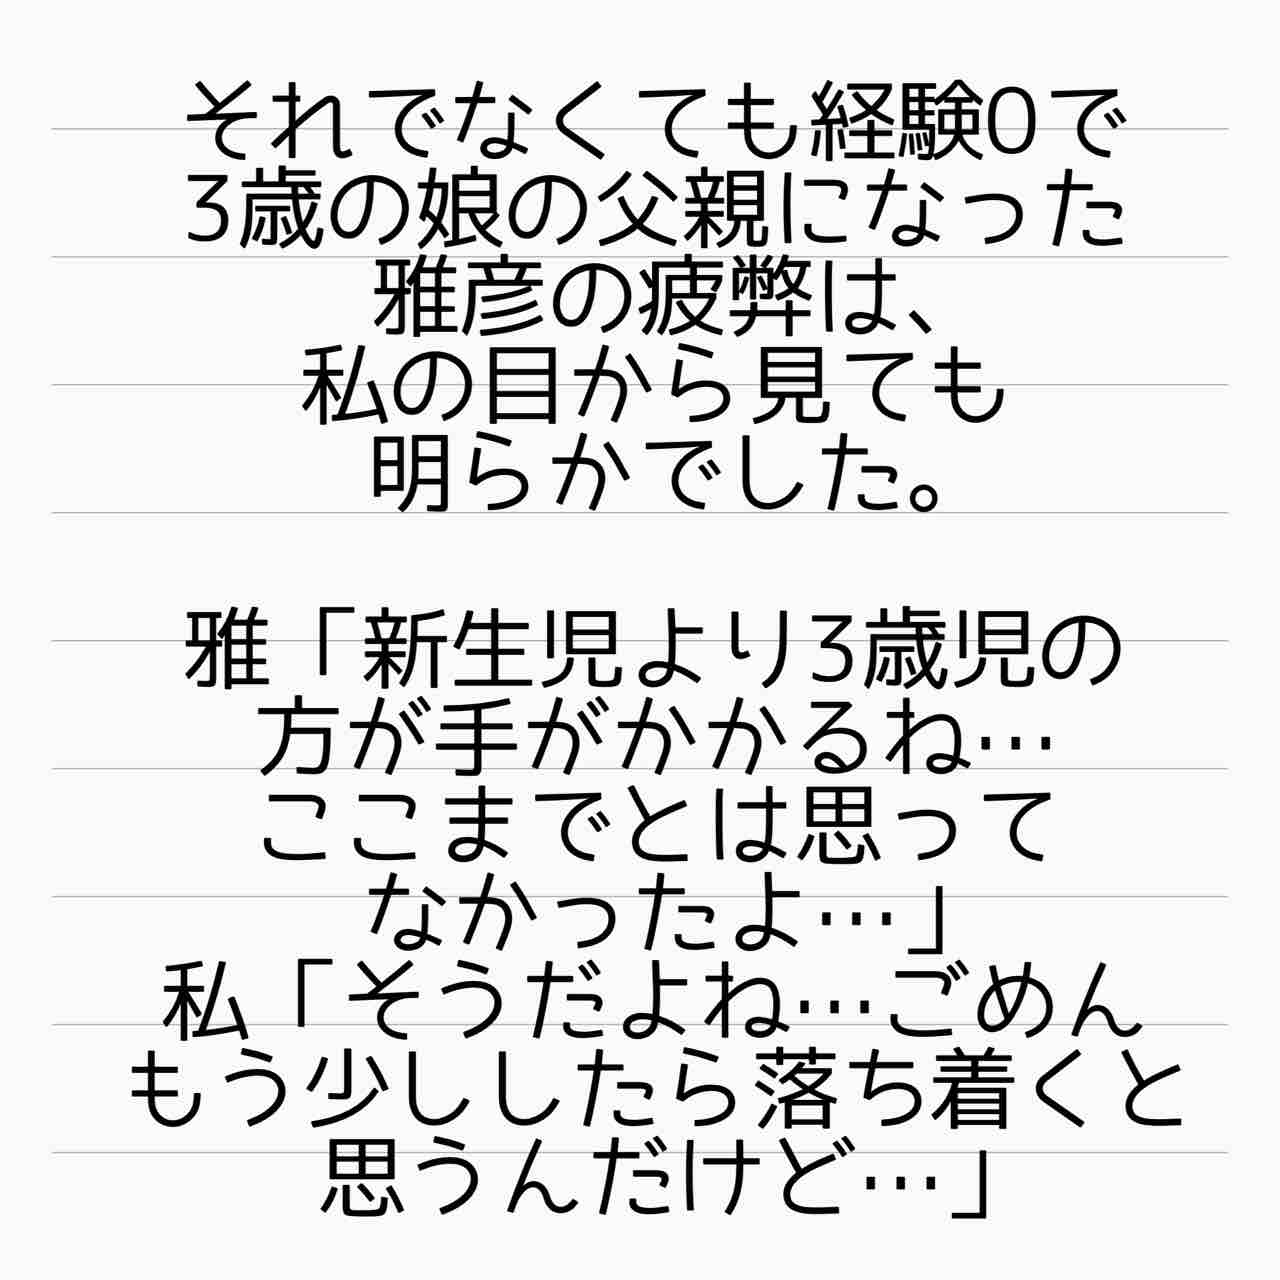 それでなくても経験0で
3歳の娘の父親になった
雅彦の疲弊は、
私の目から見ても
明らかでした。
雅「新生児より3歳児の
方が手がかかるね…
ここまでとは思って
なかったよ…」
私「そうだよね…ごめん
もう少ししたら落ち着くと
思うんだけど…」